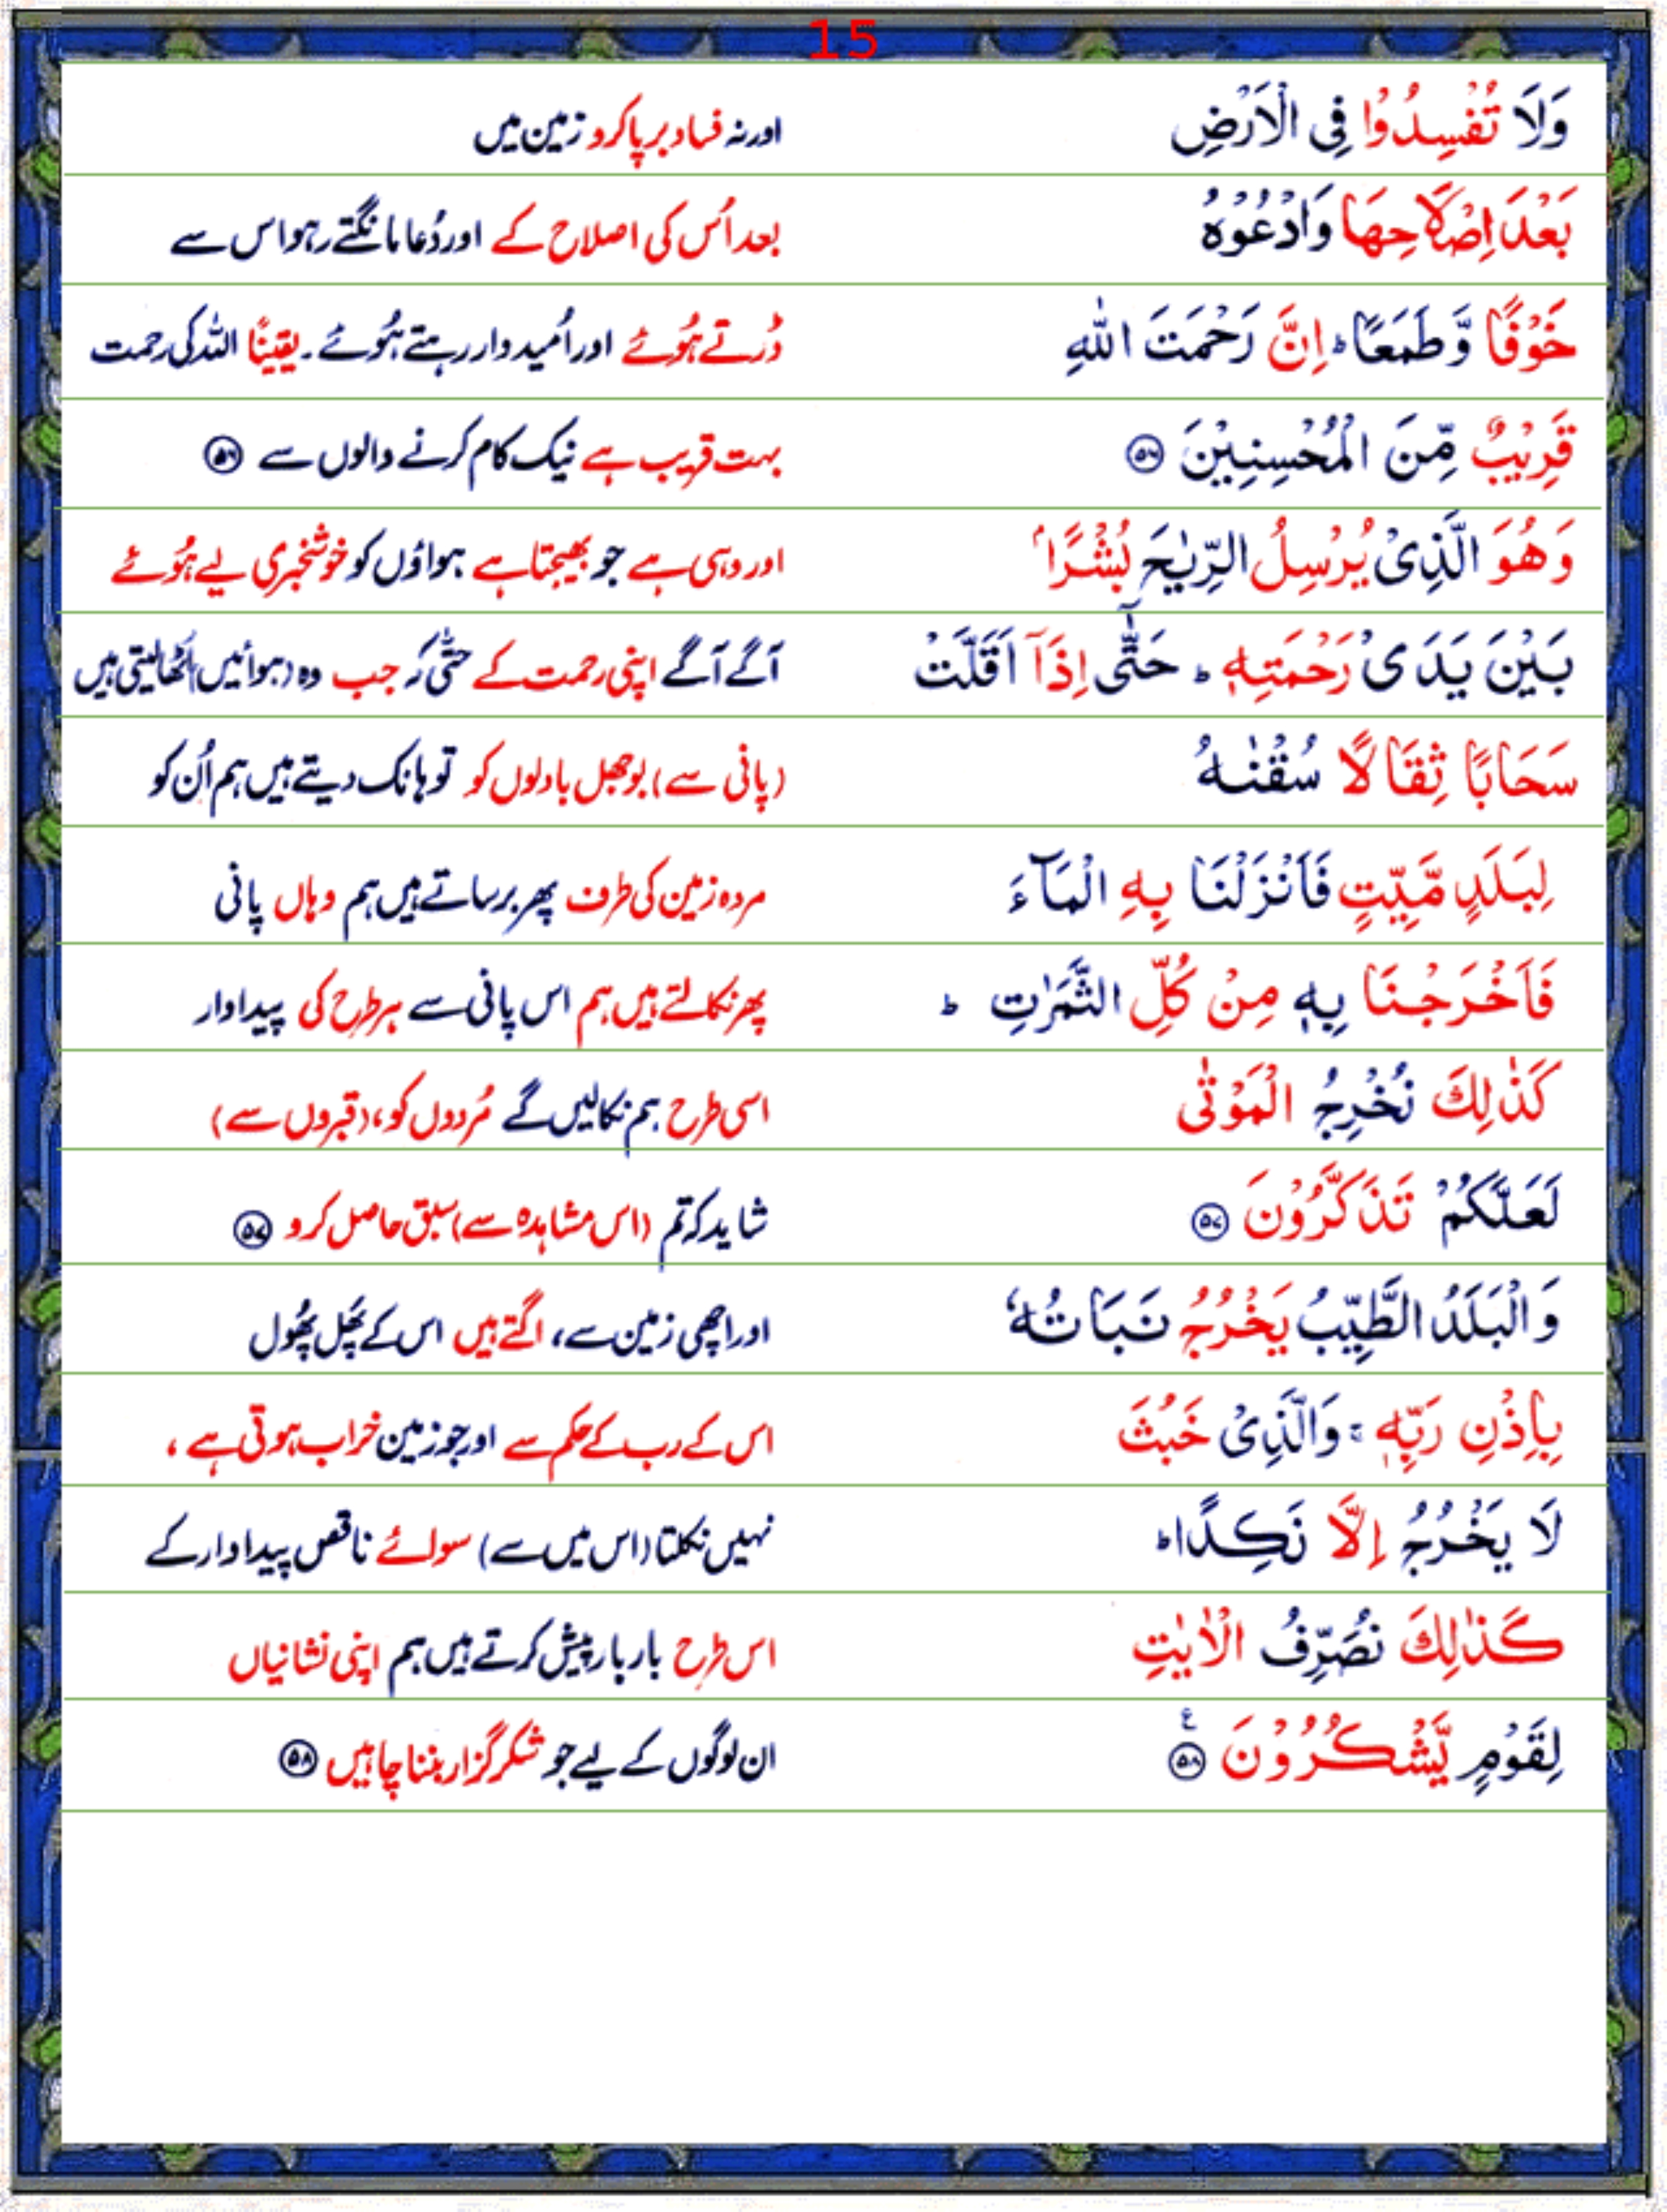 15
وَلَا تُفْسِدُوْا فِی الْاَرْضِ اور نہ فساد برپا کرو زمین میں
بَعْدَ اِصْلَاحِهَا وَادْعُوْهُ بعد اُس کی اصلاح کے اور دُعا مانگتے رہو اس سے
خَوْفًا وَّطَمَعًا ؕ اِنَّ رَحْمَتَ اللّٰهِ ڈرتے ہُوئے اور اُمیدوار رہتے ہُوئے ۔ یقینًا اللہ کی رحمت
قَرِیْبٌ مِّنَ الْمُحْسِنِیْنَ ﴿۵۶﴾ بہت قریب ہے نیک کام کرنے والوں سے ﴿۵۶﴾
وَهُوَ الَّذِیْ یُرْسِلُ الرِّیٰحَ بُشْرًۢا اور وہی ہے جو بھیجتا ہے ہواؤں کو خوشخبری لیے ہُوئے
بَیْنَ یَدَیْ رَحْمَتِهٖ ؕ حَتّٰۤی اِذَاۤ اَقَلَّتْ آگے آگے اپنی رحمت کے حتّٰی کہ جب وہ (ہوائیں) اُٹھا لیتی ہیں
سَحَابًا ثِقَالًا سُقْنٰهُ (پانی سے) بوجھل بادلوں کو تو ہانک دیتے ہیں ہم اُن کو
لِبَلَدٍ مَّیِّتٍ فَاَنْزَلْنَا بِهِ الْمَآءَ مردہ زمین کی طرف پھر برساتے ہیں ہم وہاں پانی
فَاَخْرَجْنَا بِهٖ مِنْ كُلِّ الثَّمَرٰتِ ؕ پھر نکالتے ہیں ہم اس پانی سے ہر طرح کی پیداوار
كَذٰلِكَ نُخْرِجُ الْمَوْتٰی اسی طرح ہم نکالیں گے مُردوں کو، (قبروں سے)
لَعَلَّكُمْ تَذَكَّرُوْنَ ﴿۵۷﴾ شاید کہ تم (اس مشاہدہ سے) سبق حاصل کرو ﴿۵۷﴾
وَالْبَلَدُ الطَّیِّبُ یَخْرُجُ نَبَاتُهٗ اور اچھی زمین سے، اگتے ہیں اس کے پَھل پُھول
بِاِذْنِ رَبِّهٖ ۚ وَالَّذِیْ خَبُثَ اس کے رب کے حکم سے اور جو زمین خراب ہوتی ہے ،
لَا یَخْرُجُ اِلَّا نَكِدًا ؕ نہیں نکلتا (اس میں سے) سوائے ناقص پیداوار کے
كَذٰلِكَ نُصَرِّفُ الْاٰیٰتِ اس طرح بار بار پیش کرتے ہیں ہم اپنی نشانیاں
لِقَوْمٍ یَّشْكُرُوْنَ ﴿۵۸﴾ ع ان لوگوں کے لیے جو شکر گزار بننا چاہیں ﴿۵۸﴾